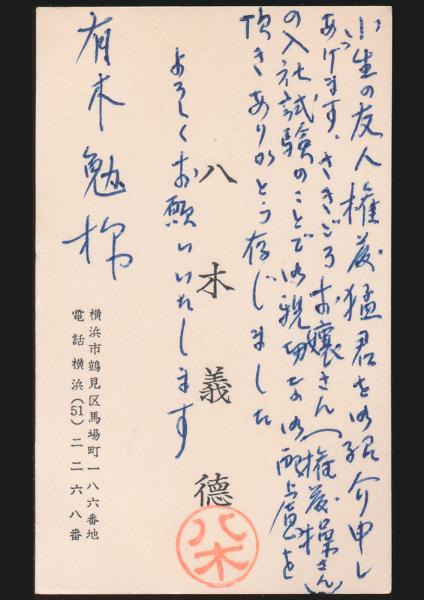 小生の友人権藤猛君を御紹介申し
あげます、さきごろお嬢さん(権藤操さん)
の入社試験のことで御親切な御配慮を
頂きありがとう存じました
よろしくお願いいたします
八木義德
有木勉様
横浜市鶴見区馬場町一八六番地
電話横浜(51)二二六八番
八木